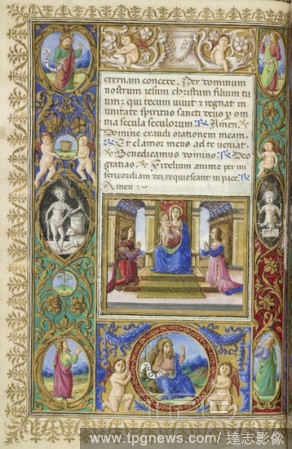 eternam concede. Per dominum
nostrum iesum christum filium tu
um: qui tecum uiuit & regnat in
unitate spiritus sancti deus p om
nia secula seculorum Amen.
Domine exaudi orationem meam.
Et clamor meus ad te ueniat.
Benedicamus domino. Deo
gratias. Fidelium anime per mi
sericordiam dei requiescant in pace
Amen:
www.tpgnews.com / 達志影像